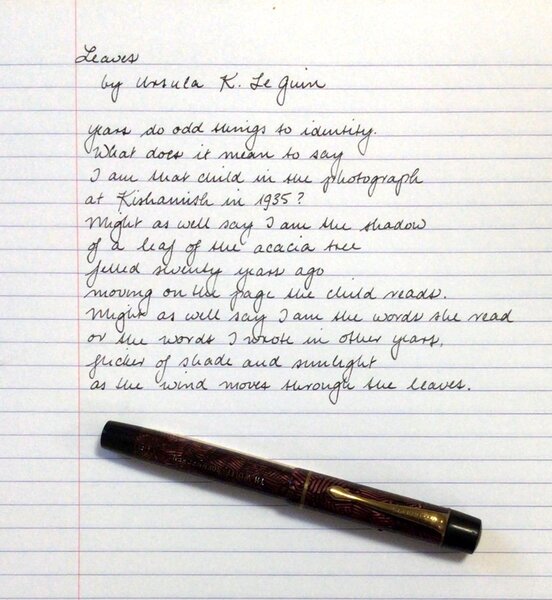 Leaves
by Ursula K. Le Guin
Years do odd things to identity.
What does it mean to say
I am that child in the photograph
at Kishamish in 1935?
Might as well say I am the shadow
of a leaf of the acacia tree
felled seventy years ago
moving on the page the child reads.
Might as well say I am the words she read
or the words I wrote in other years,
flicker of shade and sunlight
as the wind moves through the leaves.